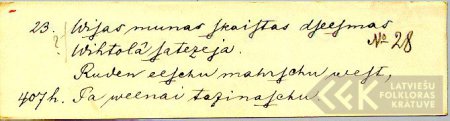 23. Wisas munas skaistas dseesmas
? Wihtolâ satezeja. № 28
Ruden eeschu mahrschu west,
407h. Pa weenai tazinaschu.
LATVIEŠU
FOLKLORAS
KRĀTUVE